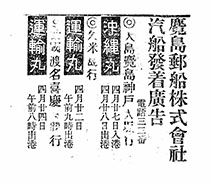 鹿島郵船株式會社
汽船發着廣告
電話三二番
沖縄丸
◎大島鹿島神戸大阪行
四月廿七日入港
四月廿八日出港
運輸丸
◎久米島行
四月廿二日
午前九時出港
運輸丸
渡名喜慶行
四月廿四日
午前八時出港